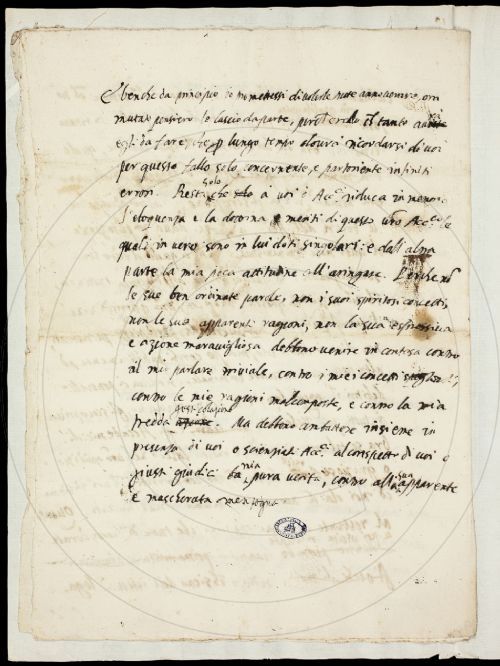 e benche da principio io promettessi di volerle tutte annoverare, ora
mutato pensiero le lascio da parte, perche tanto
egli da fare, che per lungo tempo dovrà ricordarsi di voi
per questo fallo solo, concernente, e partoriente infiniti
errori. Resta solo che a voi o Acc.ci riduca in memoria
l'eloquenza e la dottrina e meriti di questo vro Acc.co le
quali in vero sono in lui doti singolari: e dall'altra
parte la mia poca attitudine all'aringare. Perche nō
le sue ben ordinate parole, non i suoi spiritosi concetti,
non le sue apparenti ragioni, non la sua espressiva
e azione maravigliosa debbono venire in contesa contro
al mio parlare triviale, contro i miei concetti
contro le mie ragioni mal composte, e contro la mia
fredda gesticolazione. Ma debbono combattere insieme in
presenza di voi o scienziati Acc.ci al cospetto di voi o
giusti giudici la mia pura verità, contro alla sua apparente
e mascherata menzogna